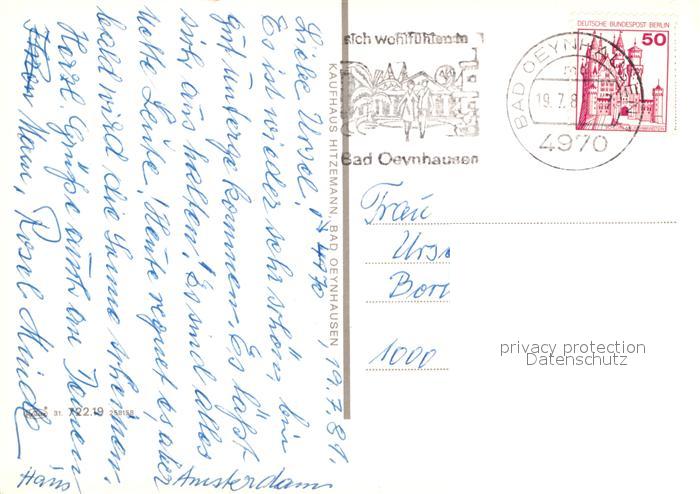 Liebe Ursel, 19.7.81.
Es ist wieder sehr schön bin
gut untergekommen. Es läßt
sich aushalten. Es sind alles
nette Leute, Heute regnet es aber
bald wird die Sonne scheinen.
Herzl. Grüße auch an Deinen
Mann, Rosel
Hans
Amsterdam
KAUFHAUS HITZEMANN, BAD OEYNHAUSEN
31. 722.19 258158
sich wohlfühlen in
Bad Oeynhausen
BAD OEYNHAUSEN
19.7.8
4970
DEUTSCHE BUNDESPOST BERLIN
50
Frau
Urs
Bor
1000
privacy protection
Datenschutz